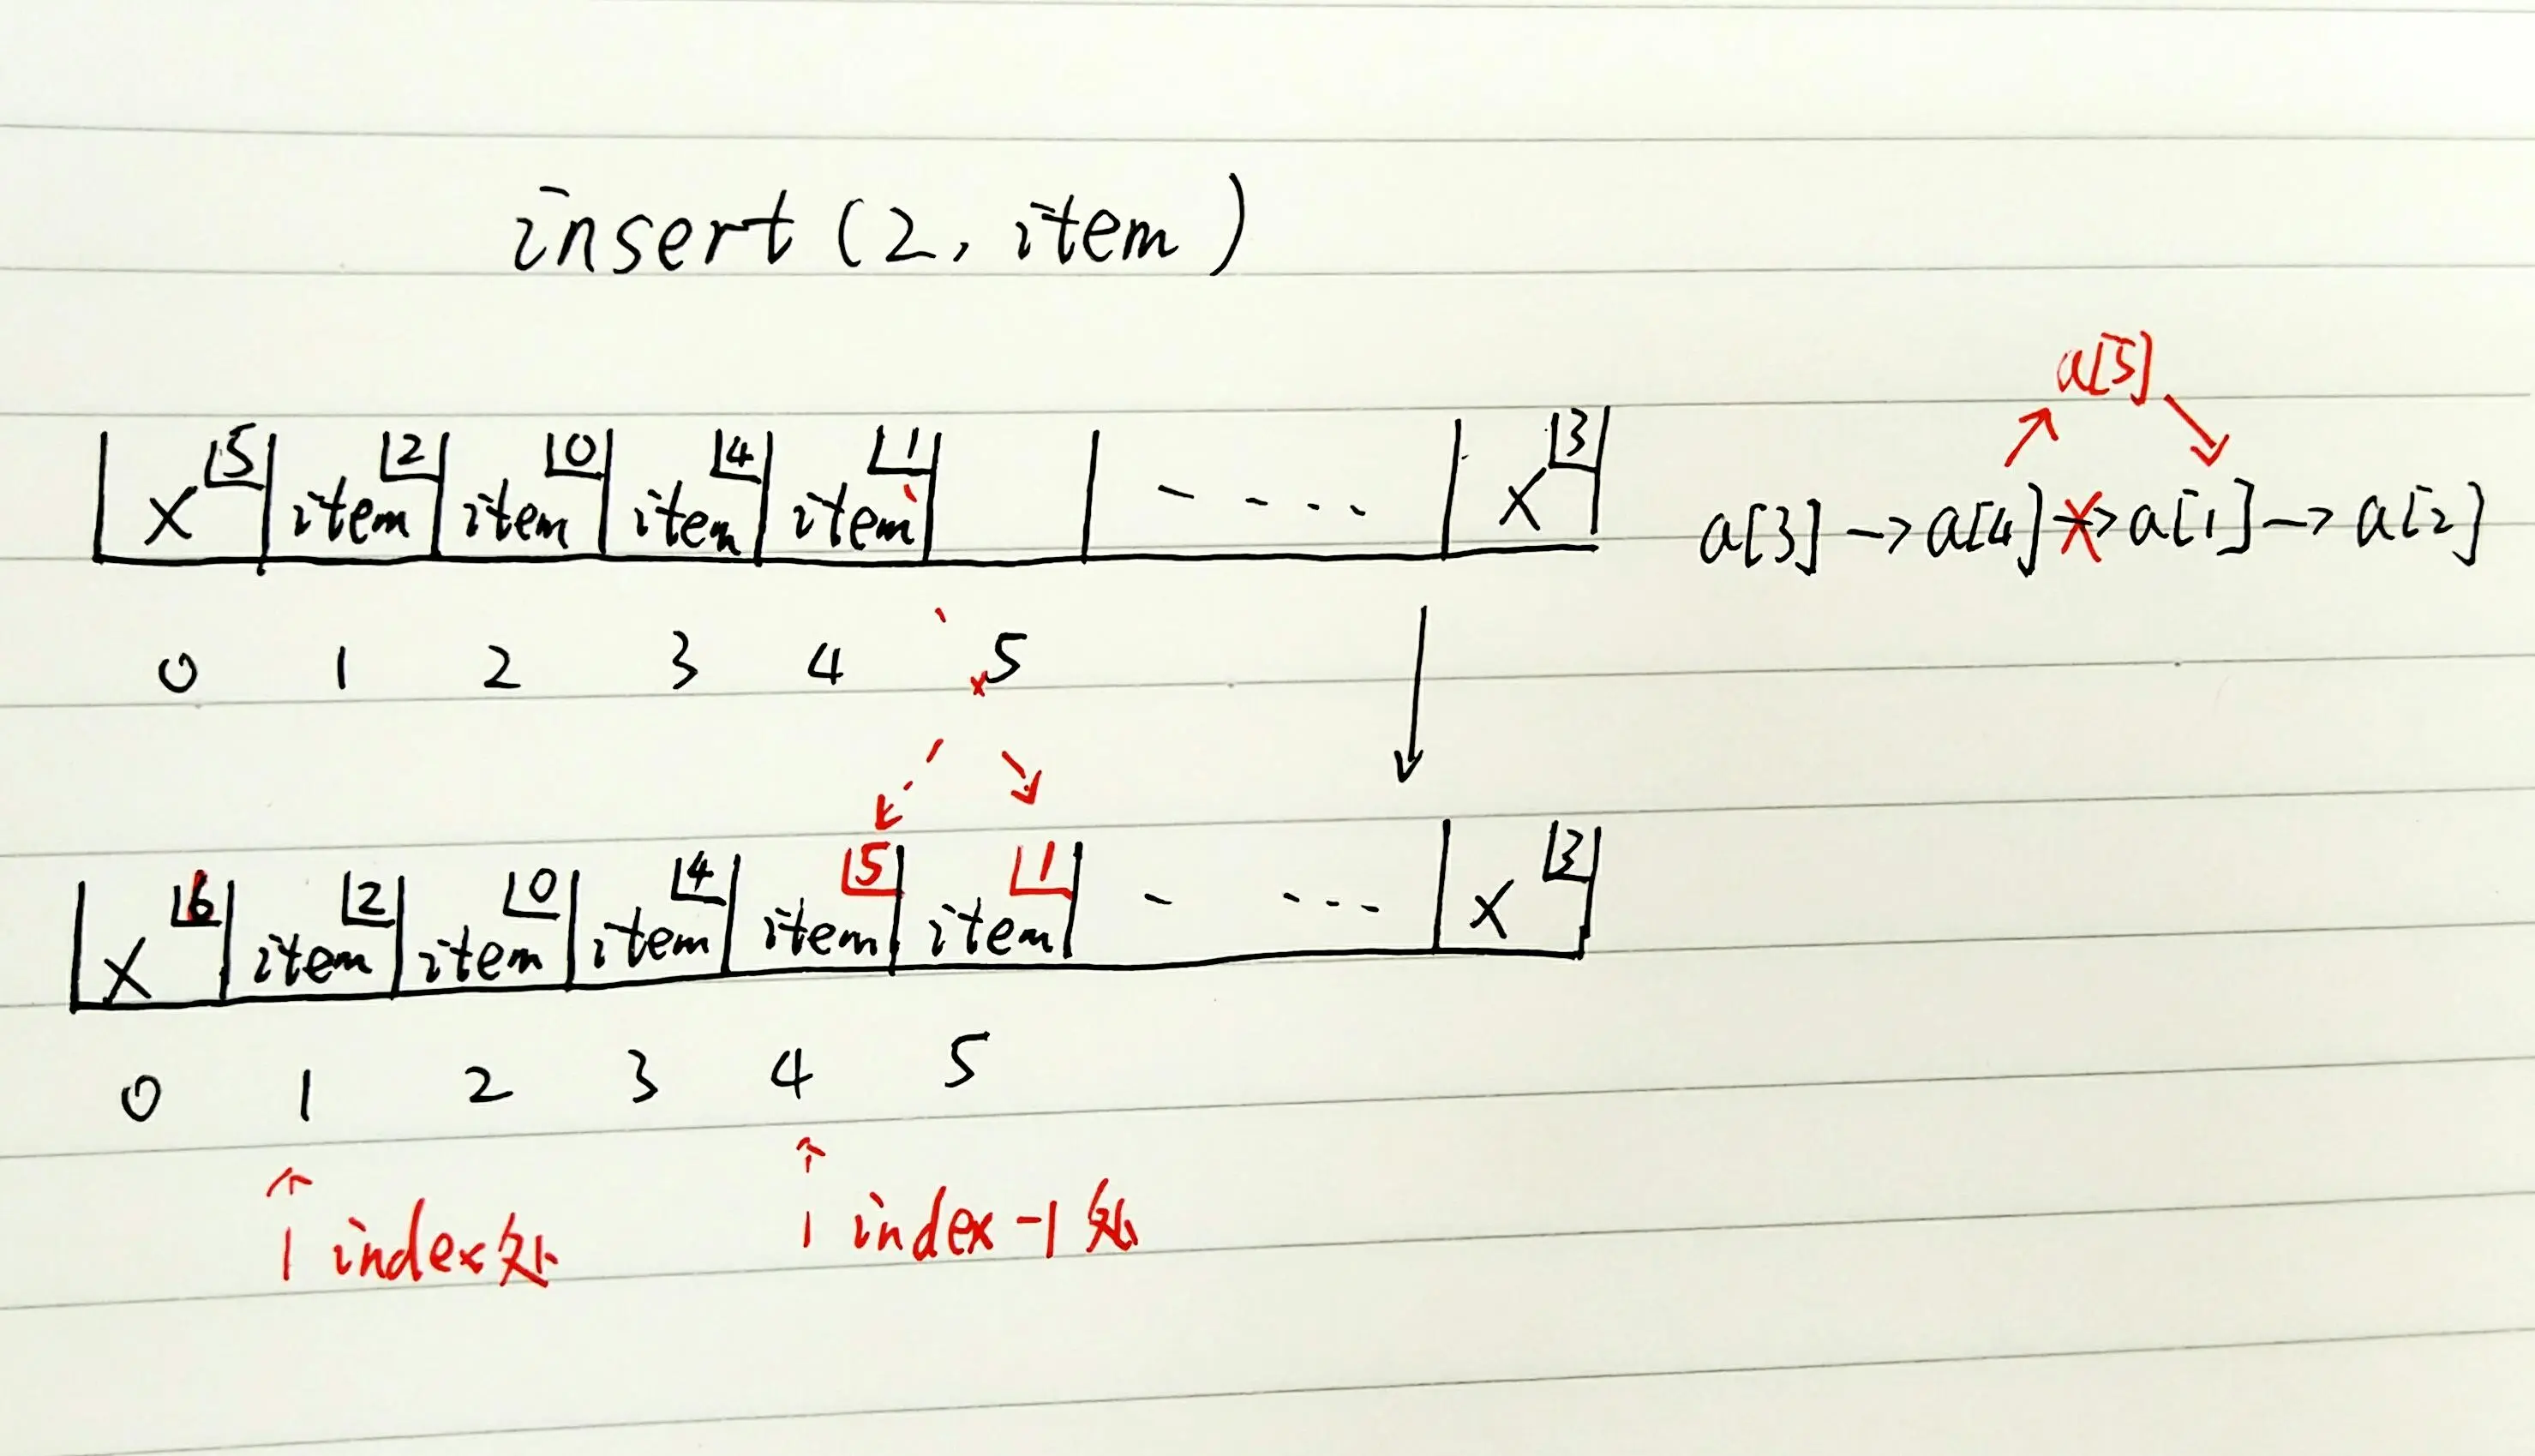 insert (2, item)
a[5]
5 2 0 4 1 3
X item item item item ---- X
a[3] → a[4] → a[1] → a[2]
0 1 2 3 4 5
6 2 0 4 5 1 3
X item item item item item - --- X
0 1 2 3 4 5
↑ index处 ↑ index-1处